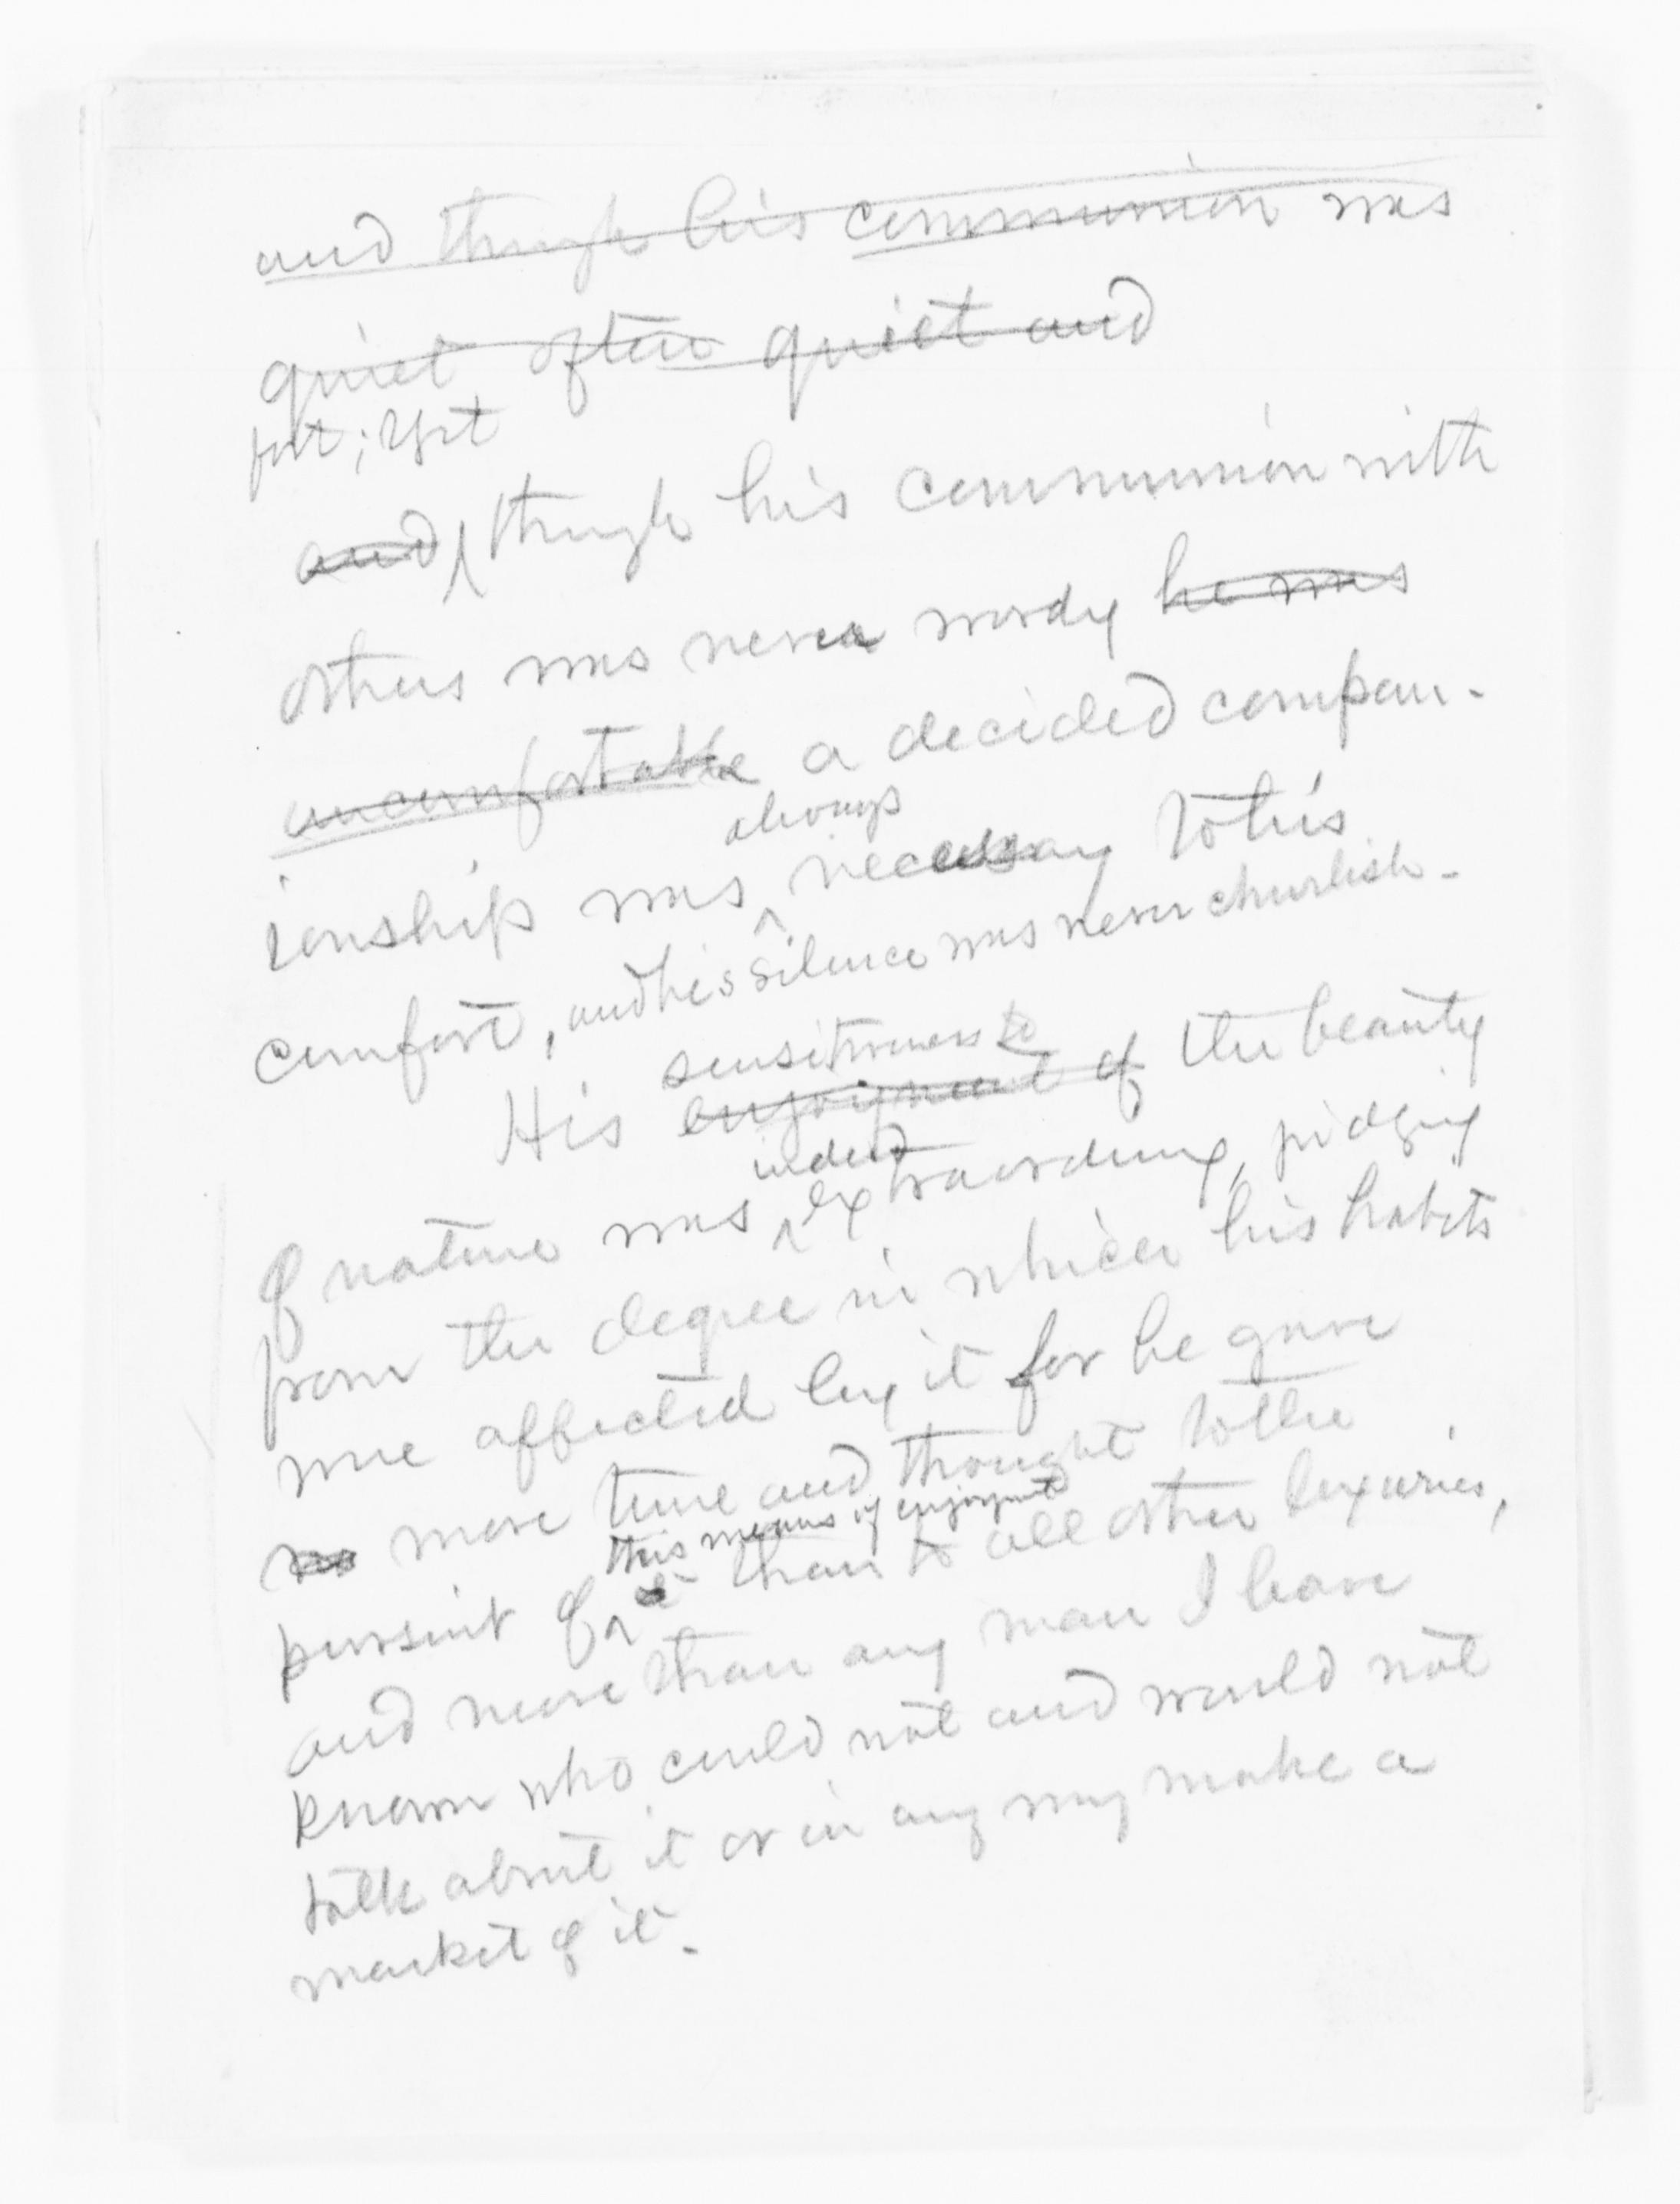 and though his communion was
quiet often quiet and
; yet
and though his communion with
others was never wordy he was
uncomfortable a decided compan-
always
ionship was necessary to his
comfort, and his silence was never churlish.
sensitiveness to
His enjoyment of the beauty
indeed
of nature was extraordinary, judging
from the degree in which his habits
were affected by it for he gave
no more time and thought to the
this means of enjoyment
pursuit of it than to all other luxuries,
and more than any man I have
known who could not and would not
talk about it or in any way make a
market of it.